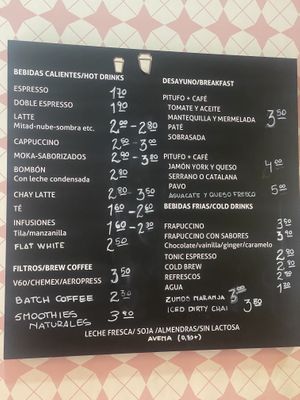 BEBIDAS CALIENTES/HOT DRINKS
ESPRESSO 1'70
DOBLE ESPRESSO 1'90
LATTE
Mitad-nube-sombra etc. 2'00 - 2'80
CAPPUCCINO 2'50 - 3'00
MOKA-SABORIZADOS 2'90 - 3'80
BOMBÓN
Con leche condensada 2'80
CHAY LATTE 2'80 - 3'50
TÉ 1'60 - 2'60
INFUSIONES
Tila/manzanilla 1'60 - 2'30
FLAT WHITE 2'50
FILTROS/BREW COFFEE
V60/CHEMEX/AEROPRESS 3'50
BATCH COFFEE 2'30
SMOOTHIES
NATURALES 3'90
DESAYUNO/BREAKFAST
PITUFO + CAFÉ
TOMATE Y ACEITE
MANTEQUILLA Y MERMELADA 3'50
PATÉ
SOBRASADA
PITUFO + CAFÉ
JAMÓN YORK Y QUESO 4'00
SERRANO O CATALANA
PAVO 5'00
AGUACATE Y QUESO FRESCO
BEBIDAS FRIAS/COLD DRINKS
FRAPUCCINO 3'50
FRAPUCCINO CON SABORES 3'90
Chocolate/vainilla/ginger/caramelo
TONIC ESPRESSO 2'80
COLD BREW
REFRESCOS
AGUA 1'30
ZUMOS NARANJA 3'00
ICED DIRTY CHAI 3'80
LECHE FRESCA/ SOJA /ALMENDRAS/SIN LACTOSA
AVENA (0,30+)